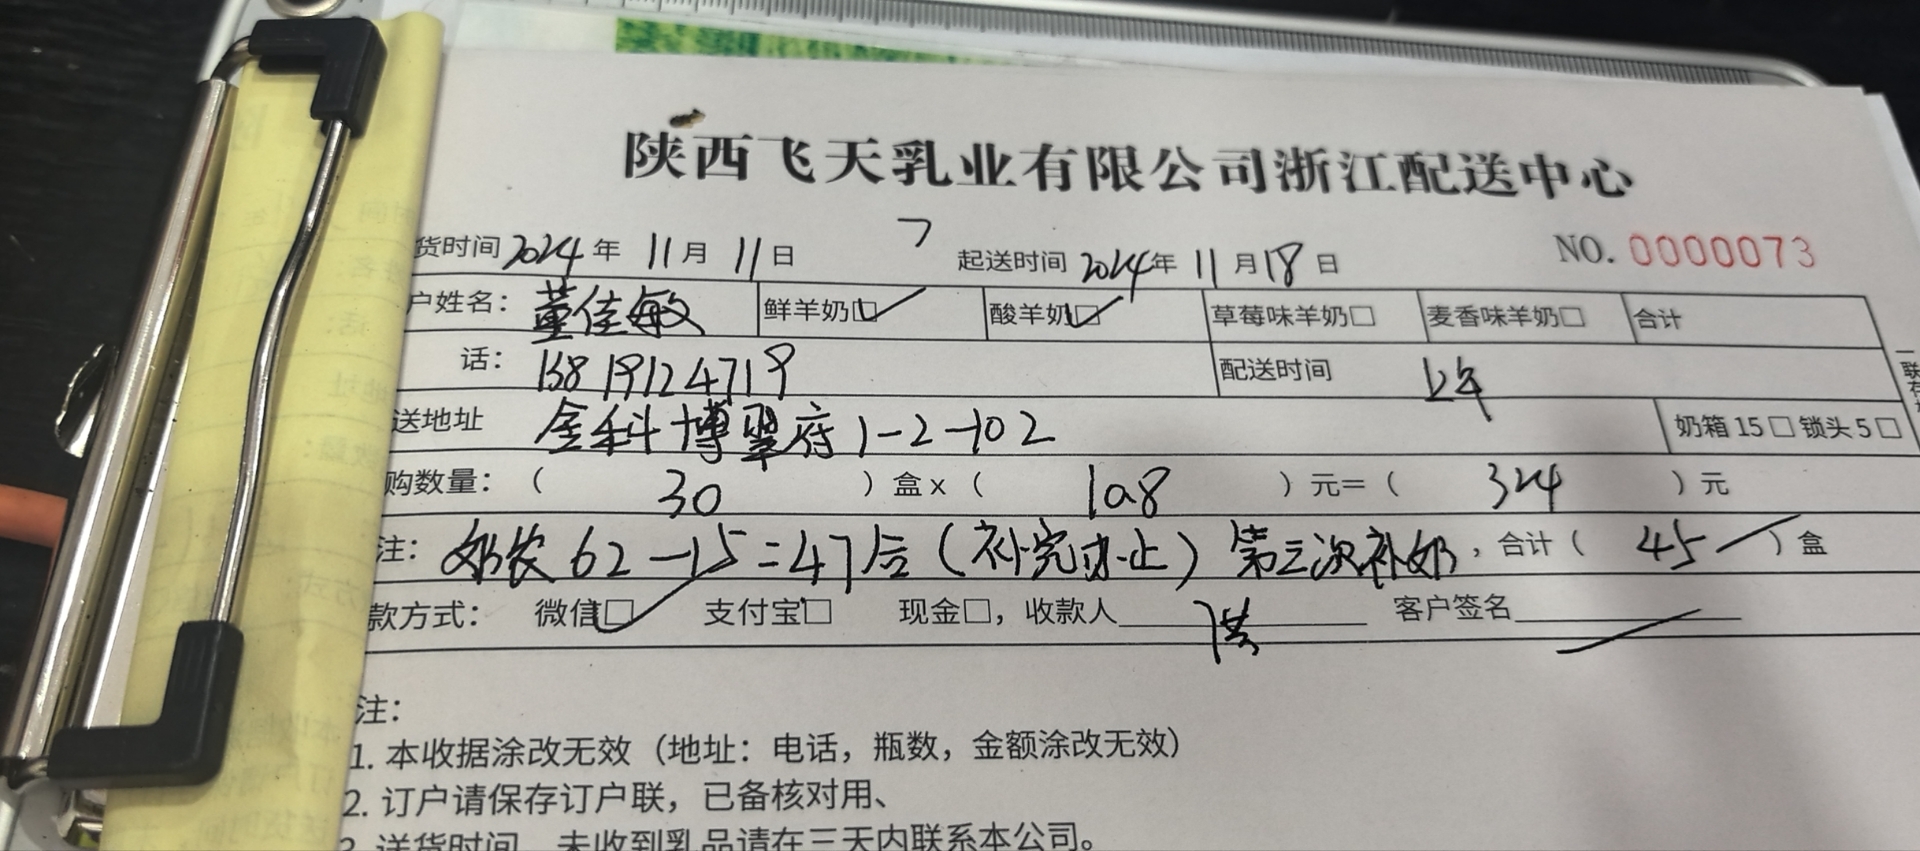 陕西飞天乳业有限公司浙江配送中心
货时间 2024 年 11 月 11 日 起送时间 2024 年 11 月 18 日 NO. 0000073
户姓名： 董佳敏 鲜羊奶□ 酸羊奶□ 草莓味羊奶□ 麦香味羊奶□ 合计
话： 13819124719 配送时间 上午
送地址 金科博翠府 1-2-102 奶箱 15 □ 锁头 5 □
购数量：（ 30 ）盒 x （ 10.8 ）元＝（ 324 ）元
注： 奶农 62-15=47后（补完为止）第三次补奶，合计（ 45 ）盒
款方式： 微信□ 支付宝□ 现金□，收款人 洪 客户签名
注：
1. 本收据涂改无效（地址：电话，瓶数，金额涂改无效）
2. 订户请保存订户联，已备核对用、
3. 送货时间，未收到乳品请在三天内联系本公司。